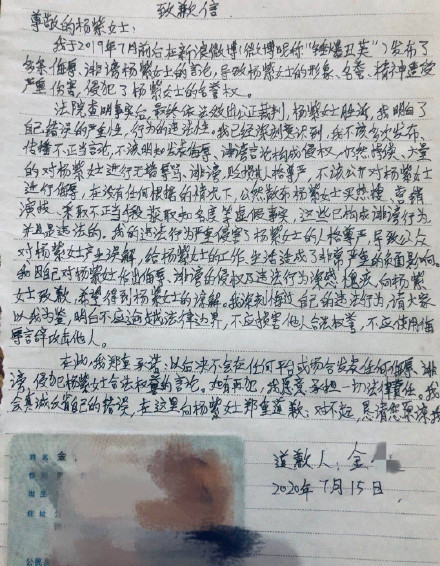 致歉信
尊敬的杨紫女士:
我于2019年7月前后在新浪微博(微博昵称"")发布了
多条侮辱、诽谤杨紫女士的言论,导致杨紫女士的形象、名誉、精神遭受
严重伤害,侵犯了杨紫女士的名誉权。
法院查明事实后,最终依法做出公正裁判,杨紫女士胜诉,我明白了
自己错误的严重性,行为的违法性。我已经深刻意识到,我不该多次发布、
传播不正当言论,不该明知发表侮辱、诽谤言论构成侵权,仍然持续、大量
的对杨紫女士进行无端辱骂、诽谤,贬损其人格尊严,不该公开对杨紫女士
进行侮辱,在没有任何根据的情况下,公然散布杨紫女士买热搜、营销
演技、采取不正当手段获取知名度等虚假事实,这些已构成诽谤行为,
并且是违法的。我的违法行为严重侵害了杨紫女士的人格尊严,导致公众
对杨紫女士产生误解,给杨紫女士的工作、生活造成了非常严重的负面影响。
我因自己对杨紫女士作出侮辱、诽谤的侵权及违法行为深感愧疚,向杨紫
女士致歉,希望得到杨紫女士的谅解。我深刻悔过自己的违法行为,请大家
以我为鉴,明白不应逾越法律边界,不应损害他人合法权益,不应使用侮
辱言辞攻击他人。
在此,我郑重承诺,以后决不会在任何平台或场合发表任何侮辱、诽
谤、侵犯杨紫女士合法权益的言论。如有再犯,我愿意承担一切法律责任。我
会真诚改自己的错误,在这里向杨紫女士郑重道歉,对不起,恳请您原谅我
道歉人:金
2020年7月15日
姓名 金
出生
住址
公民身